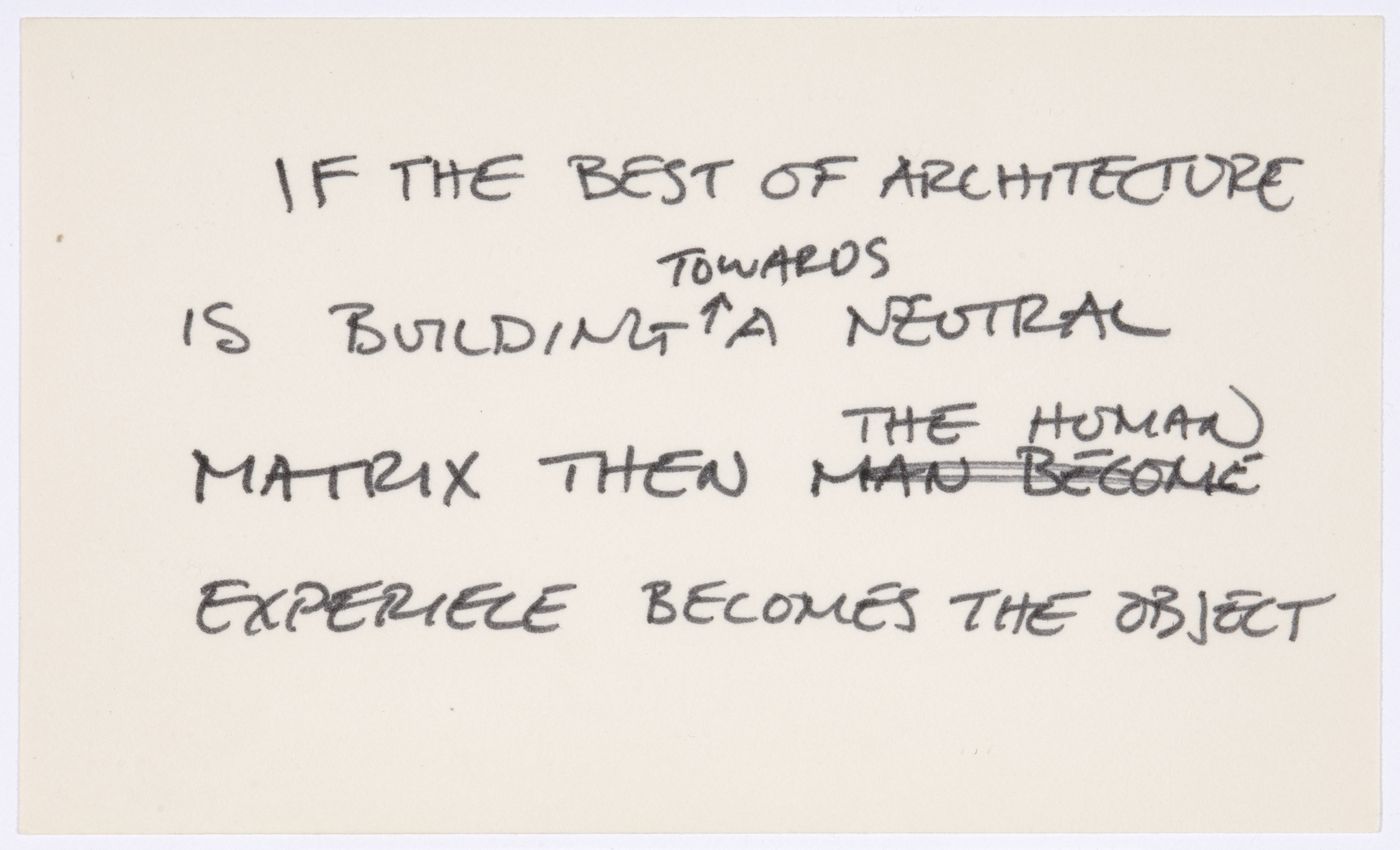 IF THE BEST OF ARCHITECTURE
TOWARDS
IS BUILDING ↑ A NEUTRAL
THE HUMAN
MATRIX THEN MAN BECOME
EXPERIECE BECOMES THE OBJECT